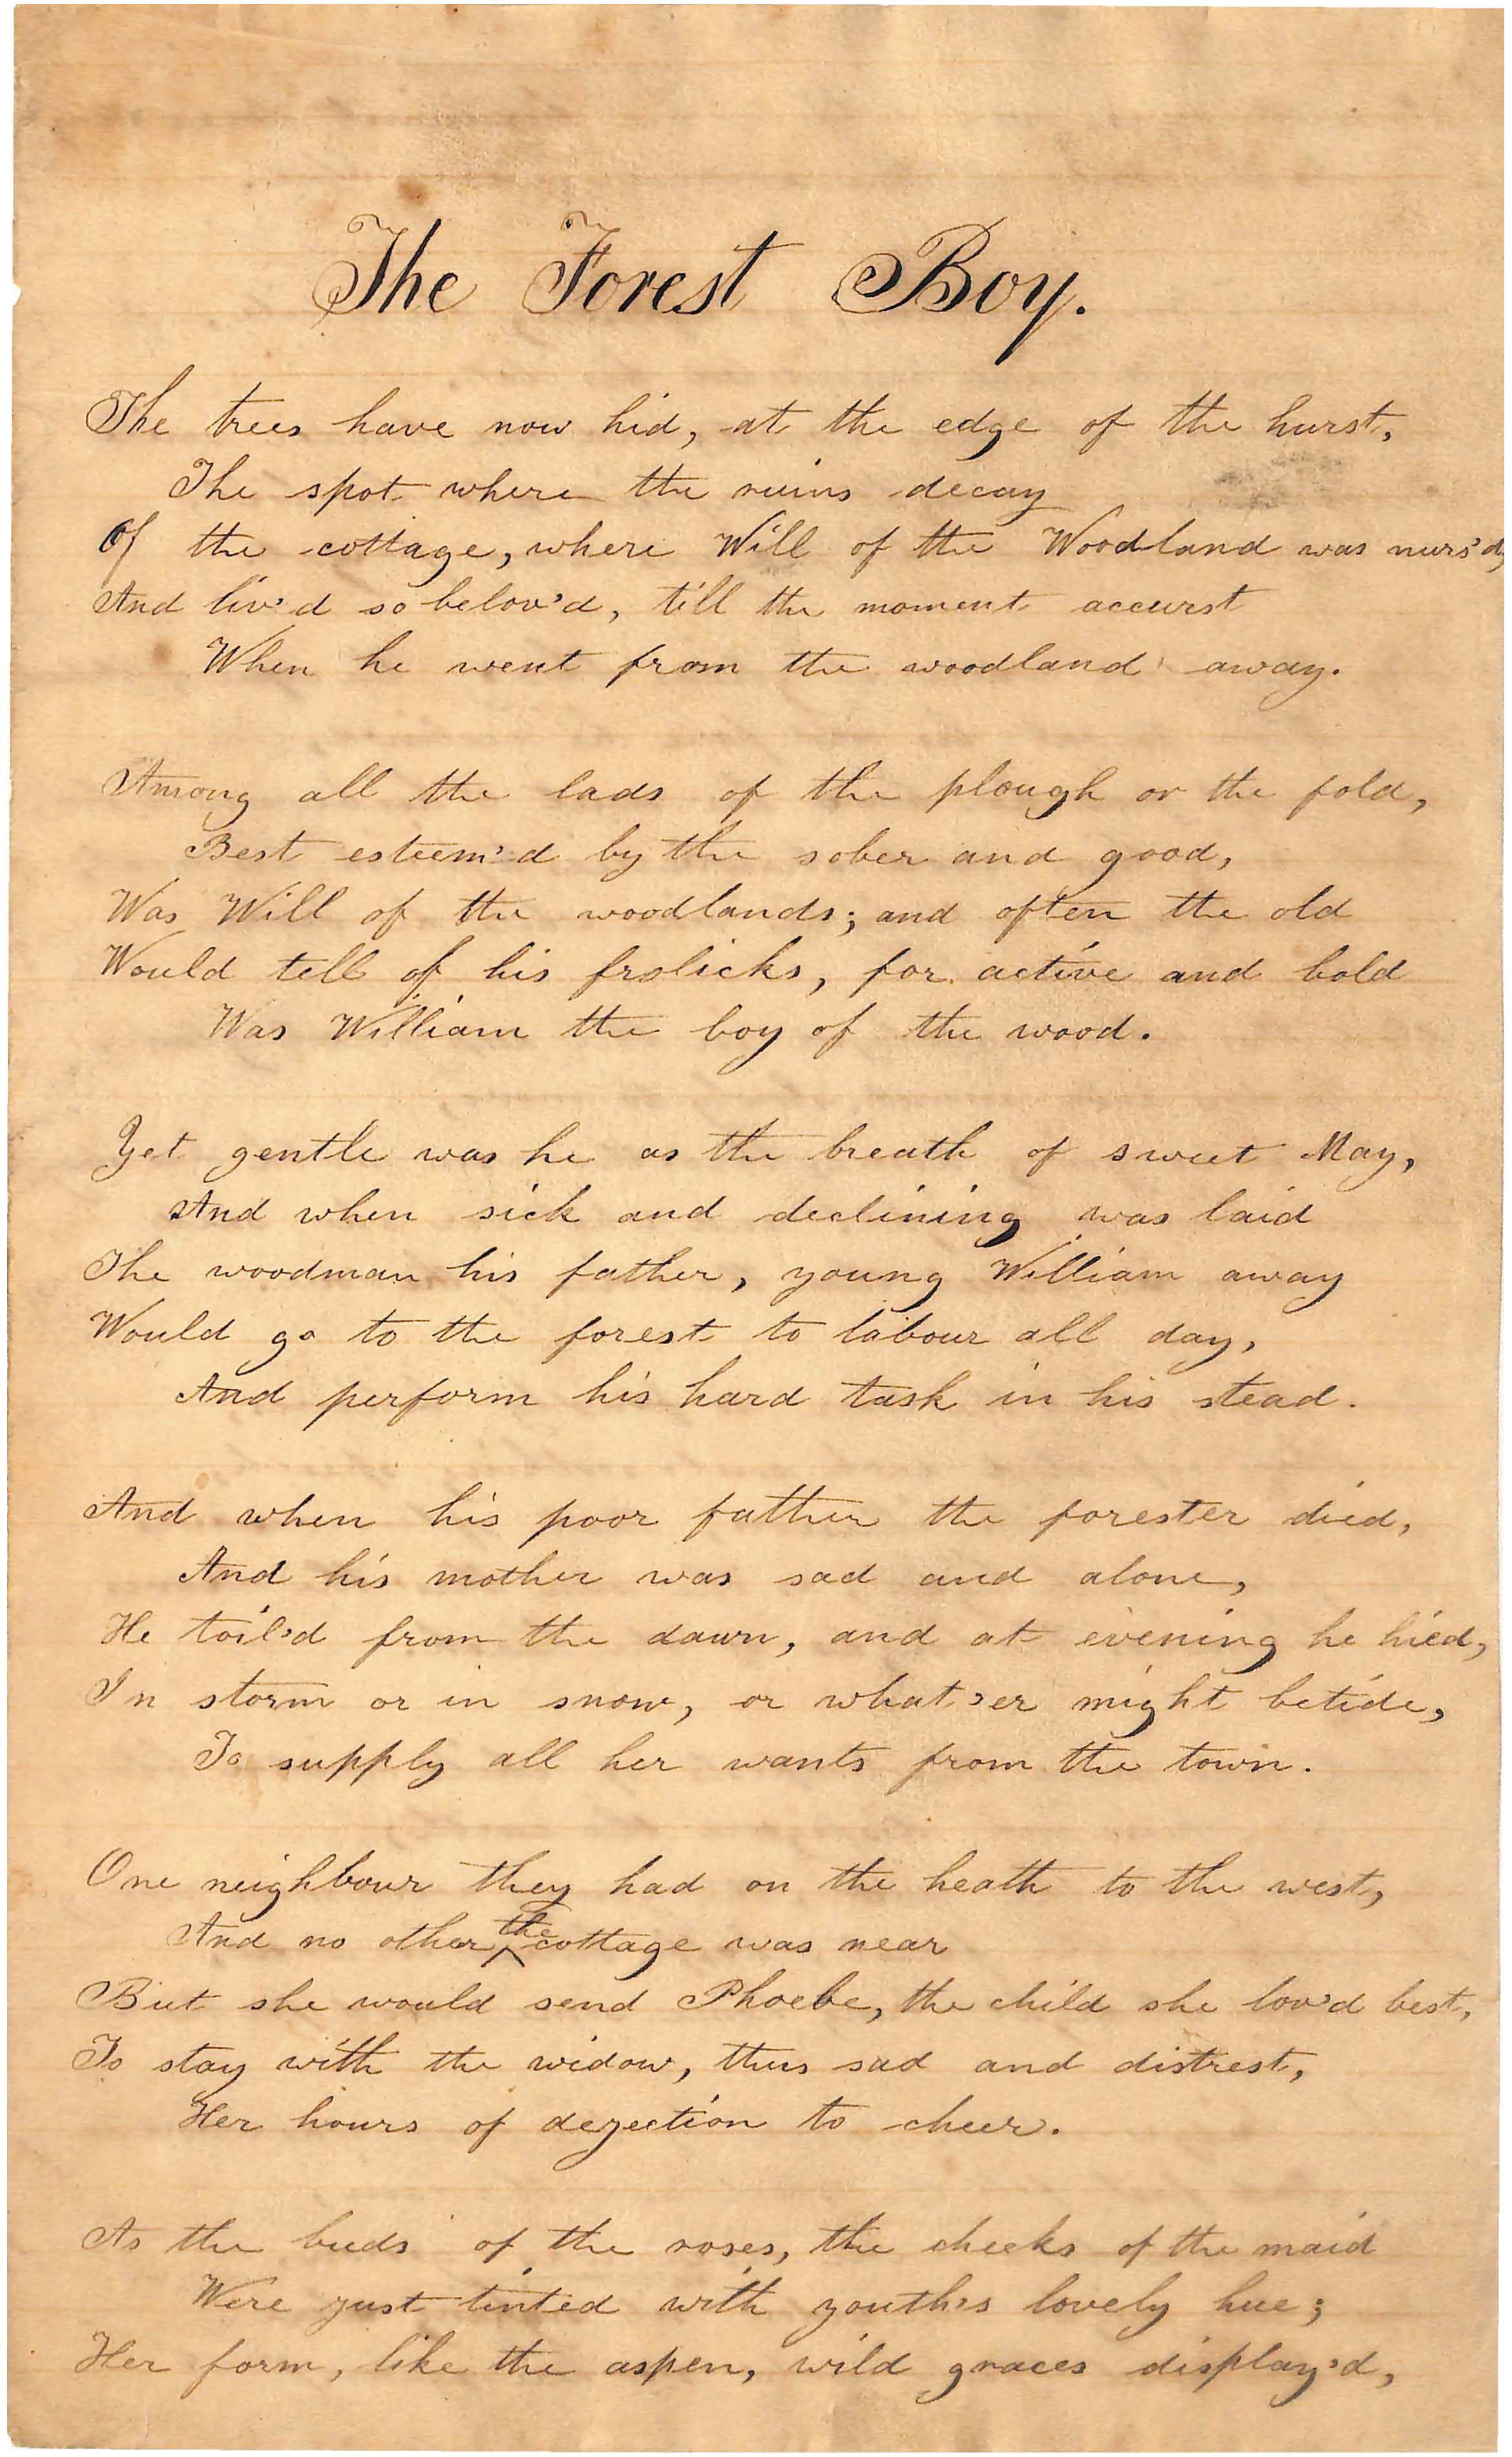 The Forest Boy.
The trees have now hid, at the edge of the hurst,
The spot where the ruins decay
Of the cottage, where Will of the Woodland was nurs'd,
And liv'd so belov'd, till the moment accurst
When he went from the woodland away.
Among all the lads of the plough or the fold,
Best esteem'd by the sober and good,
Was Will of the woodlands; and often the old
Would tell of his frolicks, for active and bold
Was William the boy of the wood.
Yet gentle was he as the breath of sweet May,
And when sick and declining was laid
The woodman his father, young William away
Would go to the forest to labour all day,
And perform his hard task in his stead.
And when his poor father the forester died,
And his mother was sad and alone,
He toil'd from the dawn, and at evening he hied,
In storm or in snow, or what'er might betide,
To supply all her wants from the town.
One neighbour they had on the heath to the west,
And no other the cottage was near
But she would send Phoebe, the child she lov'd best,
To stay with the widow, thus sad and distrest,
Her hours of dejection to cheer.
As the buds of the roses, the cheeks of the maid
Were just tinted with youth's lovely hue;
Her form, like the aspen, wild graces display'd,